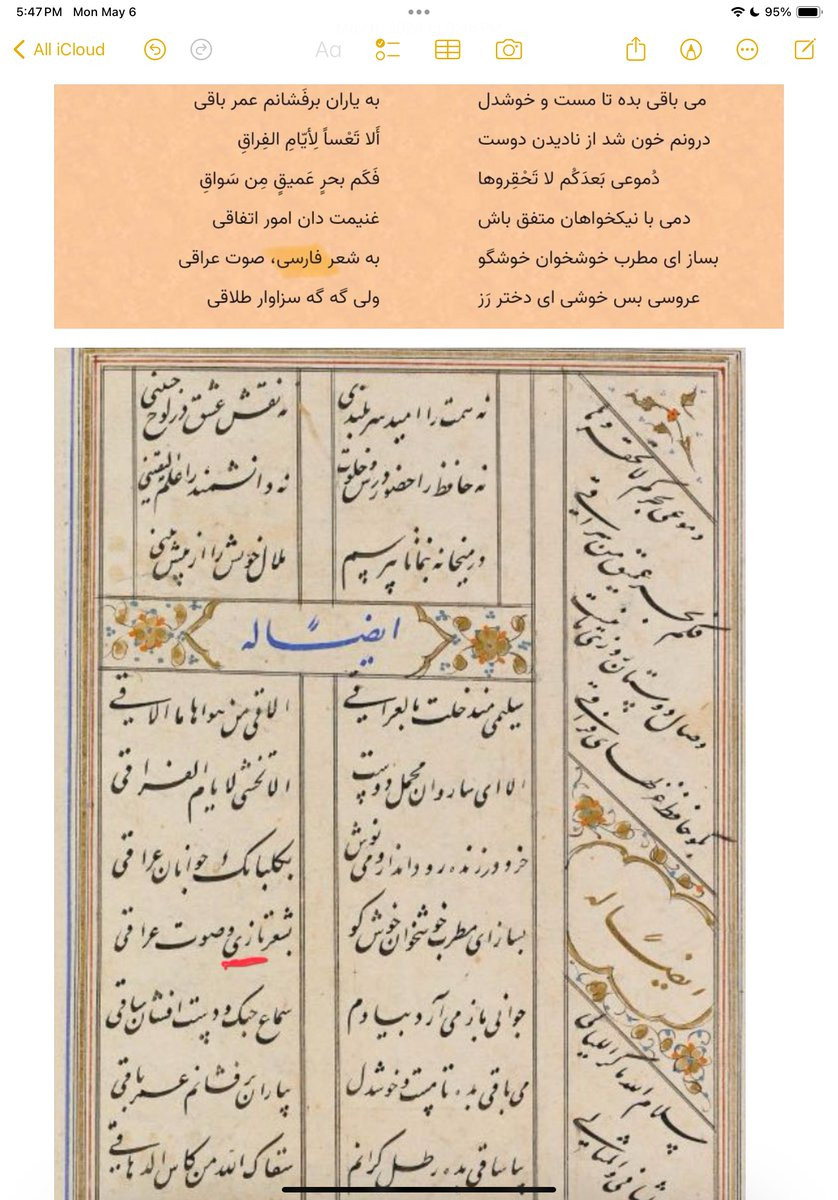 5:47 PM Mon May 6
95%
All iCloud
Aa
می باقی بده تا مست و خوشدل به یاران برفَشانم عمر باقی
درونم خون شد از نادیدن دوست أَلا تَعْساً لِأيّامِ الفِراقِ
دُموعی بَعدَکُم لا تَحْقِروها فَکَم بحرٍ عَمیقٍ مِن سَواقِ
دمی با نیکخواهان متفق باش غنیمت دان امور اتفاقی
بساز ای مطرب خوشخوان خوشگو به شعر فارسی، صوت عراقی
عروسی بس خوشی ای دختر رَز ولی گه گه سزاوار طلاقی
نه همت را امید سربلندی نه نقش عشق در لوح جبینی
نه حافظ را حضور درس خلوت نه دانشمند را علم الیقینی
در میخانه بنما تا بپرسم مال خویش را از پیش بینی
ایضاً له
سلیمی منذ حلت بالعراقی الاقی من هواها ما الاقی
الا ای ساروان محمل دوست الا تخشی لایام الفراقی
خرد در زنده رود انداز و می نوش بگلبانک جوانان عراقی
بساز ای مطرب خوشخوان خوش کو بشعر تازی و صوت عراقی
جوانی باز می آرد بیادم سماع چنک و دست افشان ساقی
می باقی بده تا مست و خوشدل بیاران برفشانم عمر باقی
بیا ساقی بده رطل کرانم سقاک الله من کاس الدهاقی
دموعی بعدکم لا تحقروها
فکم بحر عمیق من سواقی
وصال دوستان روزی ما نیست
بکو حافظ غزلهای فراقی
ایضاً له
سلام الله ما کر اللیالی